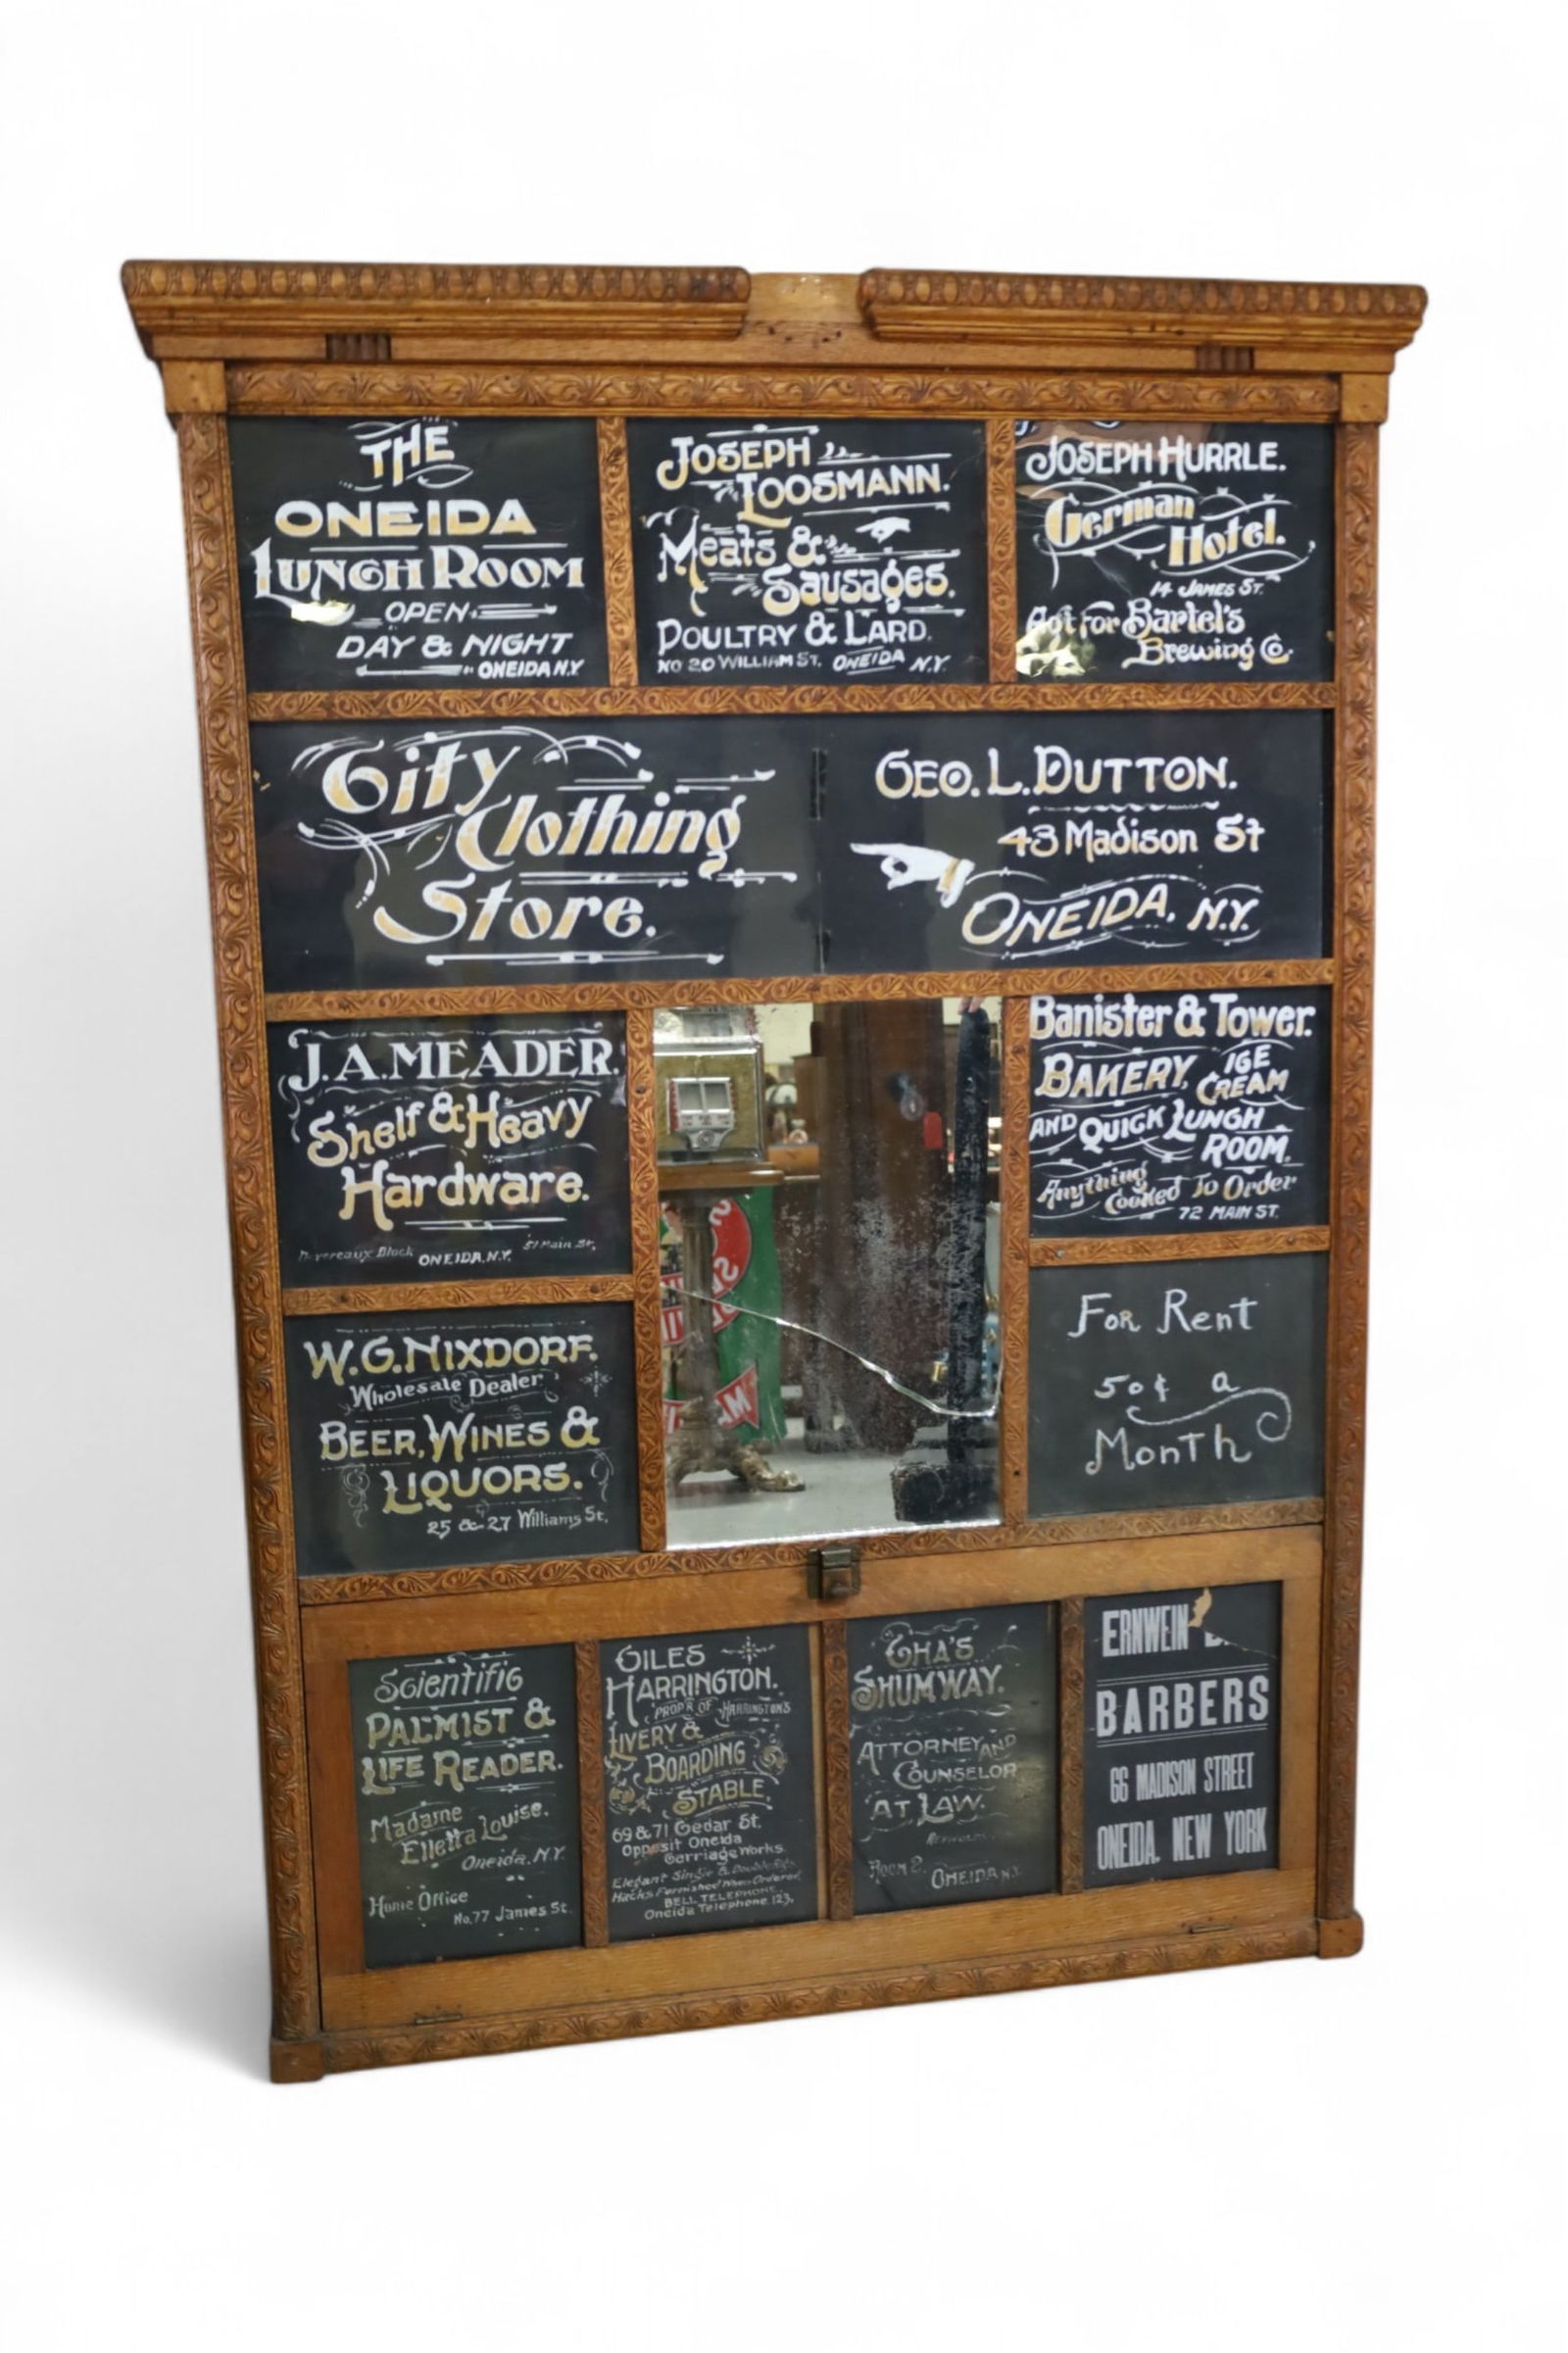 THE
ONEIDA
LUNCH ROOM
OPEN
DAY & NIGHT
ONEIDA N.Y.
JOSEPH
LOOSMANN.
Meats &
Sausages.
POULTRY & LARD.
NO 20 WILLIAM ST. ONEIDA N.Y.
JOSEPH HURRLE.
German
Hotel.
14 JAMES ST.
Agt for Bartel's
Brewing Co.
City
Clothing
Store.
GEO. L. DUTTON.
43 Madison St
ONEIDA, N.Y.
J. A. MEADER.
Shelf & Heavy
Hardware.
Devereaux Block ONEIDA, N.Y. 51 Main St.
Banister & Tower.
BAKERY, ICE
CREAM
AND QUICK LUNCH
ROOM.
Anything
Cooked To Order
72 MAIN ST.
W. G. NIXDORF.
Wholesale Dealer
BEER, WINES &
LIQUORS.
25 & 27 Williams St.
For Rent
50¢ a
Month
Scientific
PALMIST &
LIFE READER.
Madame
Elletta Louise.
Oneida, N.Y.
Home Office
No. 77 James St.
GILES
HARRINGTON.
PROP'R OF HARRINGTON'S
LIVERY &
BOARDING
STABLE.
69 & 71 Cedar St.
Opposit Oneida
Carriage Works.
Elegant Single & Double Rigs
Hacks Furnished When Ordered.
BELL TELEPHONE
Oneida Telephone 123.
CHA'S
SHUMWAY.
ATTORNEY AND
COUNSELOR
AT LAW.
ROOM 2. ONEIDA N.Y.
ERNWEIN
BARBERS
66 MADISON STREET
ONEIDA, NEW YORK